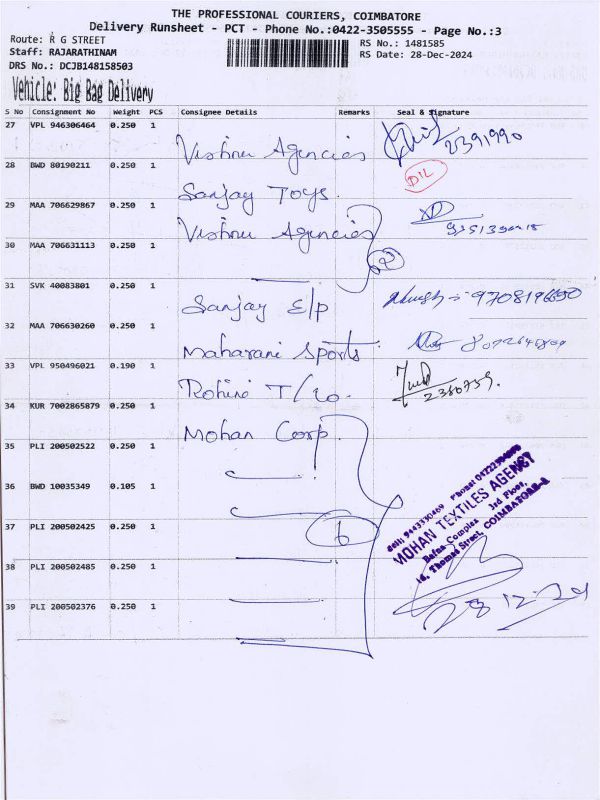 THE PROFESSIONAL COURIERS, COIMBATORE
Delivery Runsheet - PCT - Phone No.:0422-3505555 - Page No.:3
Route: R G STREET
Staff: RAJARATHINAM
DRS No.: DCJB148158503
RS No.: 1481585
RS Date: 28-Dec-2024
Vehicle: Big Bag Delivery
S No Consignment No Weight PCS Consignee Details Remarks Seal & Signature
27 VPL 946306464 0.250 1 Vishnu Agencies 2391990
28 BWD 80190211 0.250 1 Sanjay Toys. DIL
29 MAA 706629867 0.250 1 Vishnu Agencies
30 MAA 706631113 0.250 1 2
31 SVK 40083801 0.250 1 Sanjay E/p
32 MAA 706630260 0.250 1 Maharani Sports
33 VPL 950496021 0.190 1 Rohini T/Co. 2380759.
34 KUR 7002865879 0.250 1 Mohan Corp.
35 PLI 200502522 0.250 1
36 BWD 10035349 0.105 1
37 PLI 200502425 0.250 1 6
38 PLI 200502485 0.250 1
39 PLI 200502376 0.250 1
MOHAN TEXTILES AGENCY
Bafna Complex 3rd Floor,
16, Thomas Street, COIMBATORE-1
28.12.24